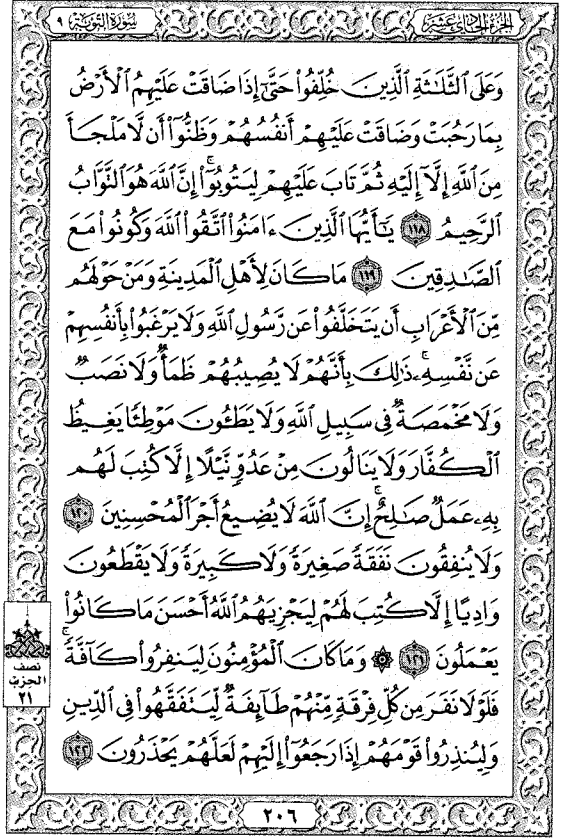 الجزء الحادي عشر
سورة التوبة ٩
وَعَلَى ٱلثَّلَٰثَةِ ٱلَّذِينَ خُلِّفُوا۟ حَتَّىٰٓ إِذَا ضَاقَتْ عَلَيْهِمُ ٱلْأَرْضُ
بِمَا رَحُبَتْ وَضَاقَتْ عَلَيْهِمْ أَنفُسُهُمْ وَظَنُّوٓا۟ أَن لَّا مَلْجَأَ
مِنَ ٱللَّهِ إِلَّآ إِلَيْهِ ثُمَّ تَابَ عَلَيْهِمْ لِيَتُوبُوٓا۟ ۚ إِنَّ ٱللَّهَ هُوَ ٱلتَّوَّابُ
ٱلرَّحِيمُ ١١٨ يَٰٓأَيُّهَا ٱلَّذِينَ ءَامَنُوا۟ ٱتَّقُوا۟ ٱللَّهَ وَكُونُوا۟ مَعَ
ٱلصَّٰدِقِينَ ١١٩ مَا كَانَ لِأَهْلِ ٱلْمَدِينَةِ وَمَنْ حَوْلَهُم
مِّنَ ٱلْأَعْرَابِ أَن يَتَخَلَّفُوا۟ عَن رَّسُولِ ٱللَّهِ وَلَا يَرْغَبُوا۟ بِأَنفُسِهِمْ
عَن نَّفْسِهِۦ ۚ ذَٰلِكَ بِأَنَّهُمْ لَا يُصِيبُهُمْ ظَمَأٌ وَلَا نَصَبٌ
وَلَا مَخْمَصَةٌ فِى سَبِيلِ ٱللَّهِ وَلَا يَطَـُٔونَ مَوْطِئًا يَغِيظُ
ٱلْكُفَّارَ وَلَا يَنَالُونَ مِنْ عَدُوٍّ نَّيْلًا إِلَّا كُتِبَ لَهُم
بِهِۦ عَمَلٌ صَٰلِحٌ ۚ إِنَّ ٱللَّهَ لَا يُضِيعُ أَجْرَ ٱلْمُحْسِنِينَ ١٢٠
وَلَا يُنفِقُونَ نَفَقَةً صَغِيرَةً وَلَا كَبِيرَةً وَلَا يَقْطَعُونَ
وَادِيًا إِلَّا كُتِبَ لَهُمْ لِيَجْزِيَهُمُ ٱللَّهُ أَحْسَنَ مَا كَانُوا۟
يَعْمَلُونَ ١٢١ ۞ وَمَا كَانَ ٱلْمُؤْمِنُونَ لِيَنفِرُوا۟ كَآفَّةً ۚ
فَلَوْلَا نَفَرَ مِن كُلِّ فِرْقَةٍ مِّنْهُمْ طَآئِفَةٌ لِّيَتَفَقَّهُوا۟ فِى ٱلدِّينِ
وَلِيُنذِرُوا۟ قَوْمَهُمْ إِذَا رَجَعُوٓا۟ إِلَيْهِمْ لَعَلَّهُمْ يَحْذَرُونَ ١٢٢
نصف
الحزب
٢١
٢٠٦